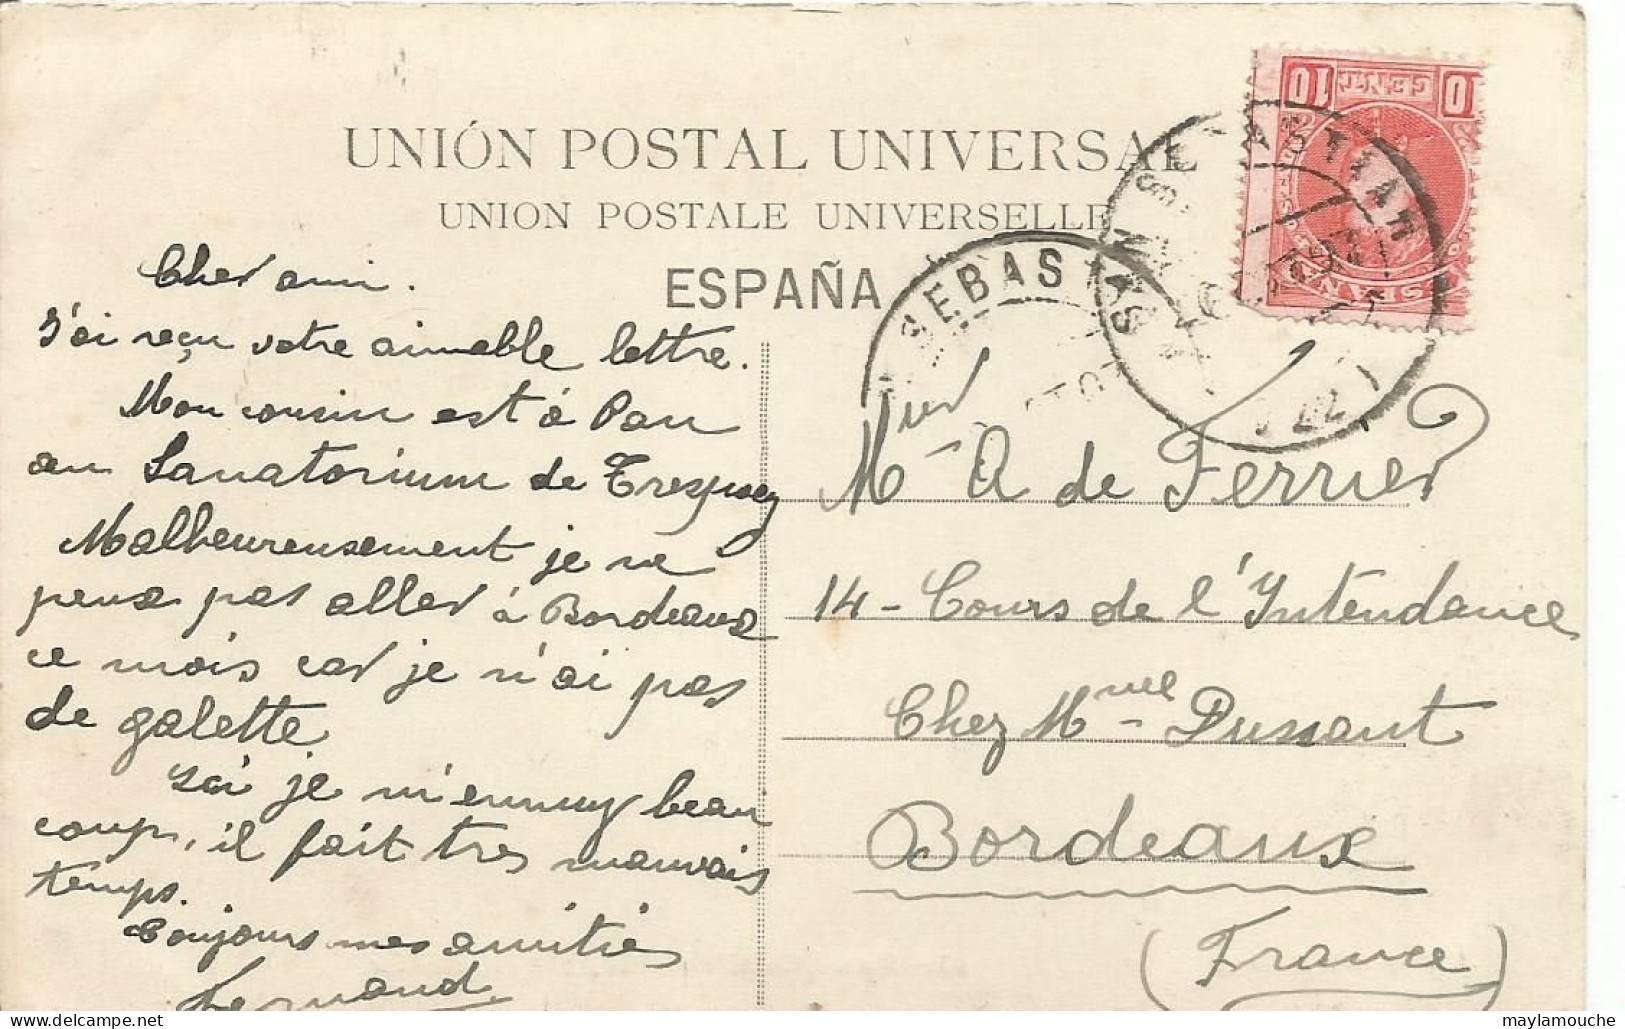 UNIÓN POSTAL UNIVERSAL
UNION POSTALE UNIVERSELLE
ESPAÑA
10 CENT 10
SAN SEBASTIAN
SEBAS
Cher ami.
J'ai reçu votre aimable lettre.
Mon cousin est à Pau
au Sanatorium de Trespoey
Malheureusement je ne
peux pas aller à Bordeaux
ce mois car je n'ai pas
de galette.
Ici je m'ennuy beau
coup, il fait tres mauvais
temps.
Toujours mes amitiés
Fernand
M A de Ferrier
14 - Cours de l'Intendance
Chez Mme Dussaut
Bordeaux
(France)
delcampe.net
maylamouche